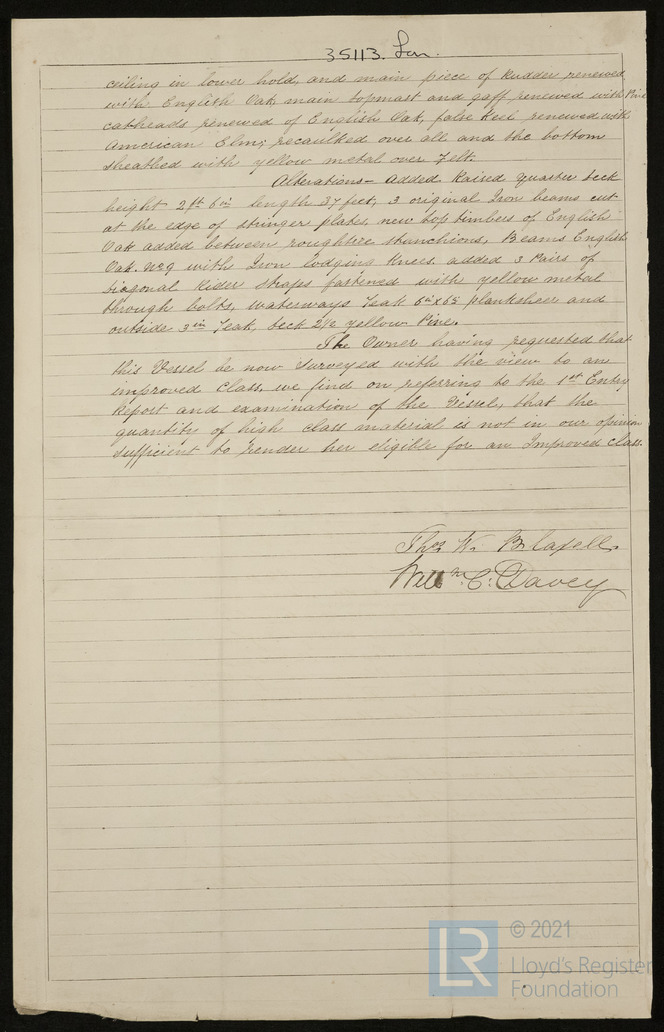 35113. Lon.
ceiling in lower hold, and main piece of Rudder renewed
with English Oak, main topmast and gaff renewed with Pine
catheads renewed of English Oak, false Keel renewed with
American Elm; recaulked over all and the bottom
sheathed with yellow metal over Felt.
Alterations - added Raised Quarter Deck
height 2ft 6in length 37 feet, 3 original Iron beams cut
at the edge of stringer plates, new top timbers of English
Oak added between roughtree stanchions, Beams English
Oak. No 9 with Iron lodging Knees. added 3 Pairs of
Diagonal Rider Straps fastened with yellow metal
through bolts, waterways Teak planksheer and
outside 3in Teak, deck 2½ yellow Pine.
The Owner having requested that
this Vessel be now surveyed with the view to an
improved class, we find on referring to the 1st Entry
Report and examination of the Vessel, that the
quantity of high class material is not in our opinion
sufficient to render her eligible for an Improved Class.
Thos W.
Willm C: Davey
LR
© 2021
Lloyd's Register
Foundation